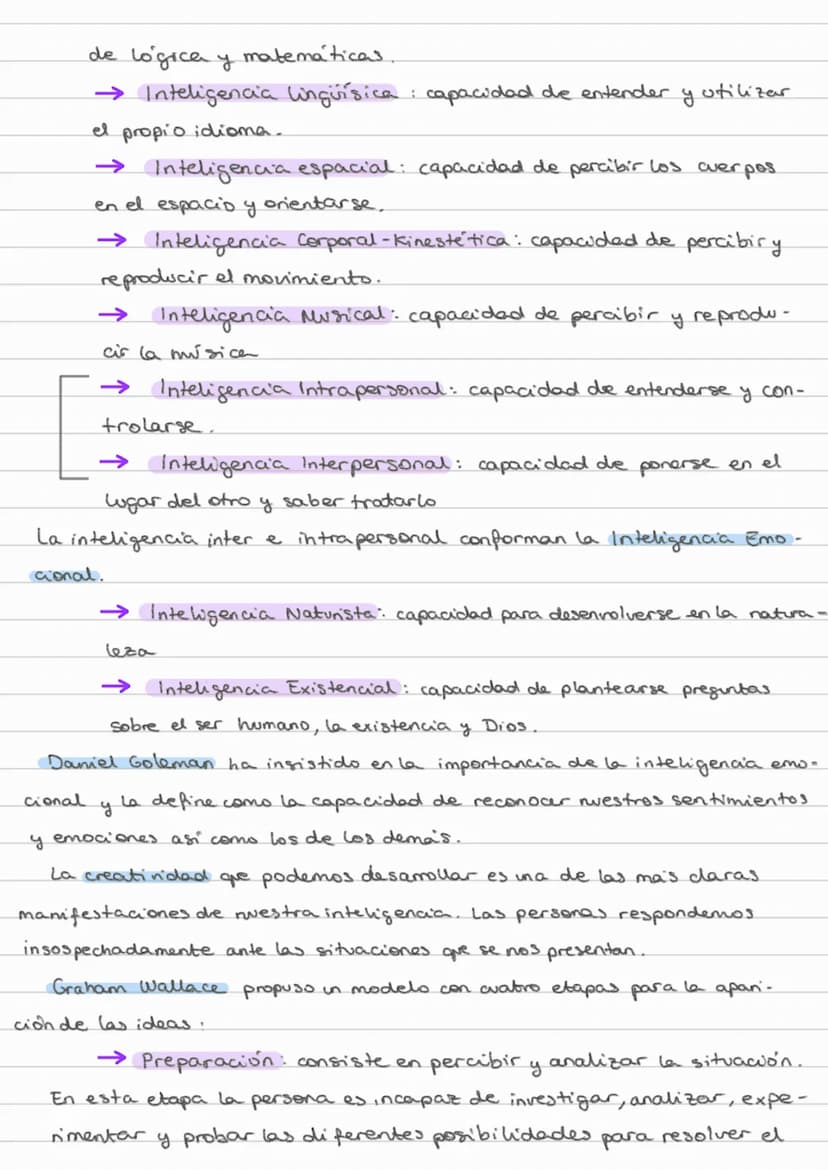 de lógica y matemáticas.
→ Inteligencia lingüísica : capacidad de entender y utilizar
el propio idioma.
→ Inteligencia espacial : capacidad de percibir los cuerpos
en el espacio y orientarse.
→ Inteligencia Corporal-Kinestética : capacidad de percibir y
reproducir el movimiento.
→ Inteligencia Musical : capacidad de percibir y reprodu-
cir la música
→ Inteligencia Intrapersonal : capacidad de entenderse y con-
trolarse.
→ Inteligencia Interpersonal : capacidad de ponerse en el
lugar del otro y saber tratarlo
La inteligencia inter e intrapersonal conforman la Inteligencia Emo-
cional.
→ Inteligencia Naturista : capacidad para desenvolverse en la natura-
leza
→ Inteligencia Existencial : capacidad de plantearse preguntas
sobre el ser humano, la existencia y Dios.
Daniel Goleman ha insistido en la importancia de la inteligencia emo-
cional y la define como la capacidad de reconocer nuestros sentimientos
y emociones así como los de los demás.
La creatividad que podemos desarrollar es una de las más claras
manifestaciones de nuestra inteligencia. Las personas respondemos
insospechadamente ante las situaciones que se nos presentan.
Graham Wallace propuso un modelo con cuatro etapas para la apari-
ción de las ideas :
→ Preparación : consiste en percibir y analizar la situación.
En esta etapa la persona es incapaz de investigar, analizar, expe-
rimentar y probar las diferentes posibilidades para resolver el